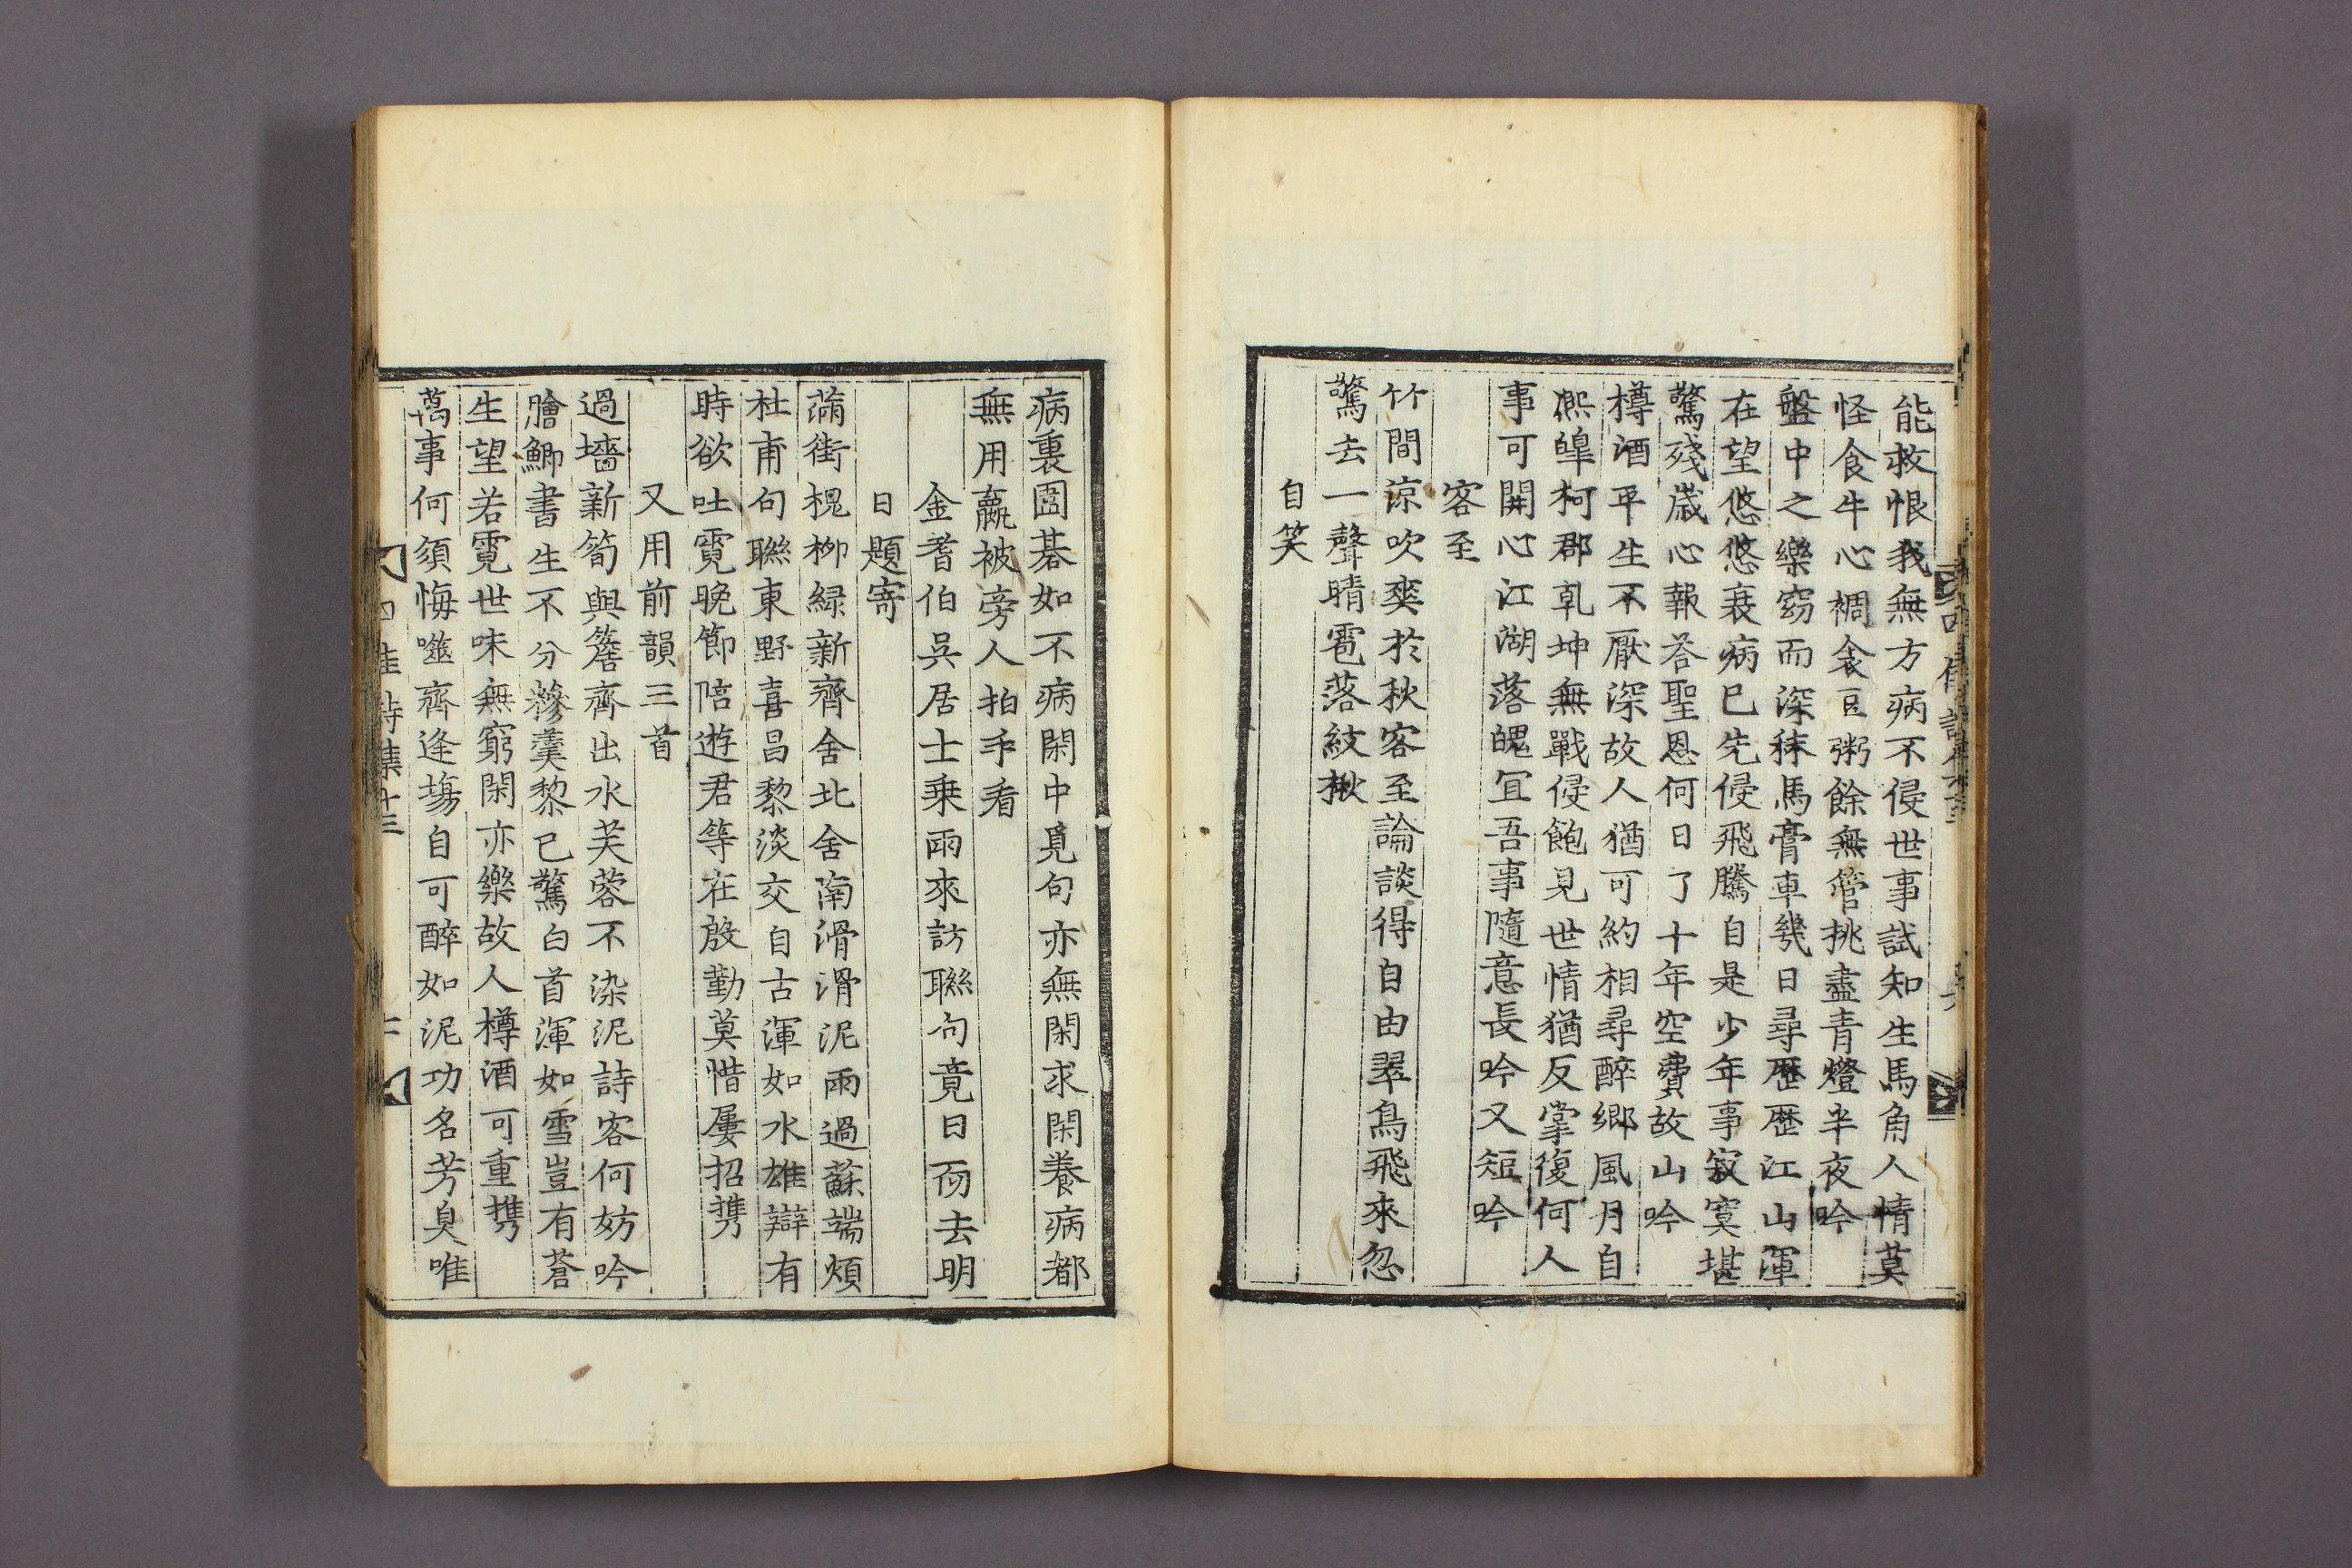 能救恨我無方病不侵世事試知生馬角人情莫
怪食牛心裯衾豆粥餘無管挑盡青燈半夜吟
盤中之樂窈而深秣馬膏車幾日尋歷歷江山渾
在望悠悠衰病已先侵飛騰自是少年事寂寞堪
驚殘歲心報答聖恩何日了十年空費故山吟
樽酒平生不厭深故人猶可約相尋醉鄉風月自
熈皥柯郡乹坤無戰侵飽見世情猶反掌復何人
事可開心江湖落魄冝吾事隨意長吟又短吟
客至
竹間涼吹爽於秋客至論談得自由翠鳥飛來忽
驚去一聲晴雹落紋楸
自笑
病裏圍碁如不病閑中覓句亦無閑求閑養病都
無用贏被旁人拍手看
金耆伯吳居士乗雨來訪聯句竟日而去明
日題寄
滿街槐柳綠新齊舍北舍南滑滑泥雨過蘇端煩
杜甫句聯東野喜昌黎淡交自古渾如水雄辯有
時欲吐霓晚節陪遊君等在殷勤莫惜屢招携
又用前韻三首
過墻新筍與簷齊出水芙蓉不染泥詩客何妨吟
膾鯽書生不分糝羹黎已驚白首渾如雪豈有蒼
生望若霓世味無窮閑亦樂故人樽酒可重携
萬事何須悔噬齊逢場自可醉如泥功名芳臭唯
四佳詩集十三